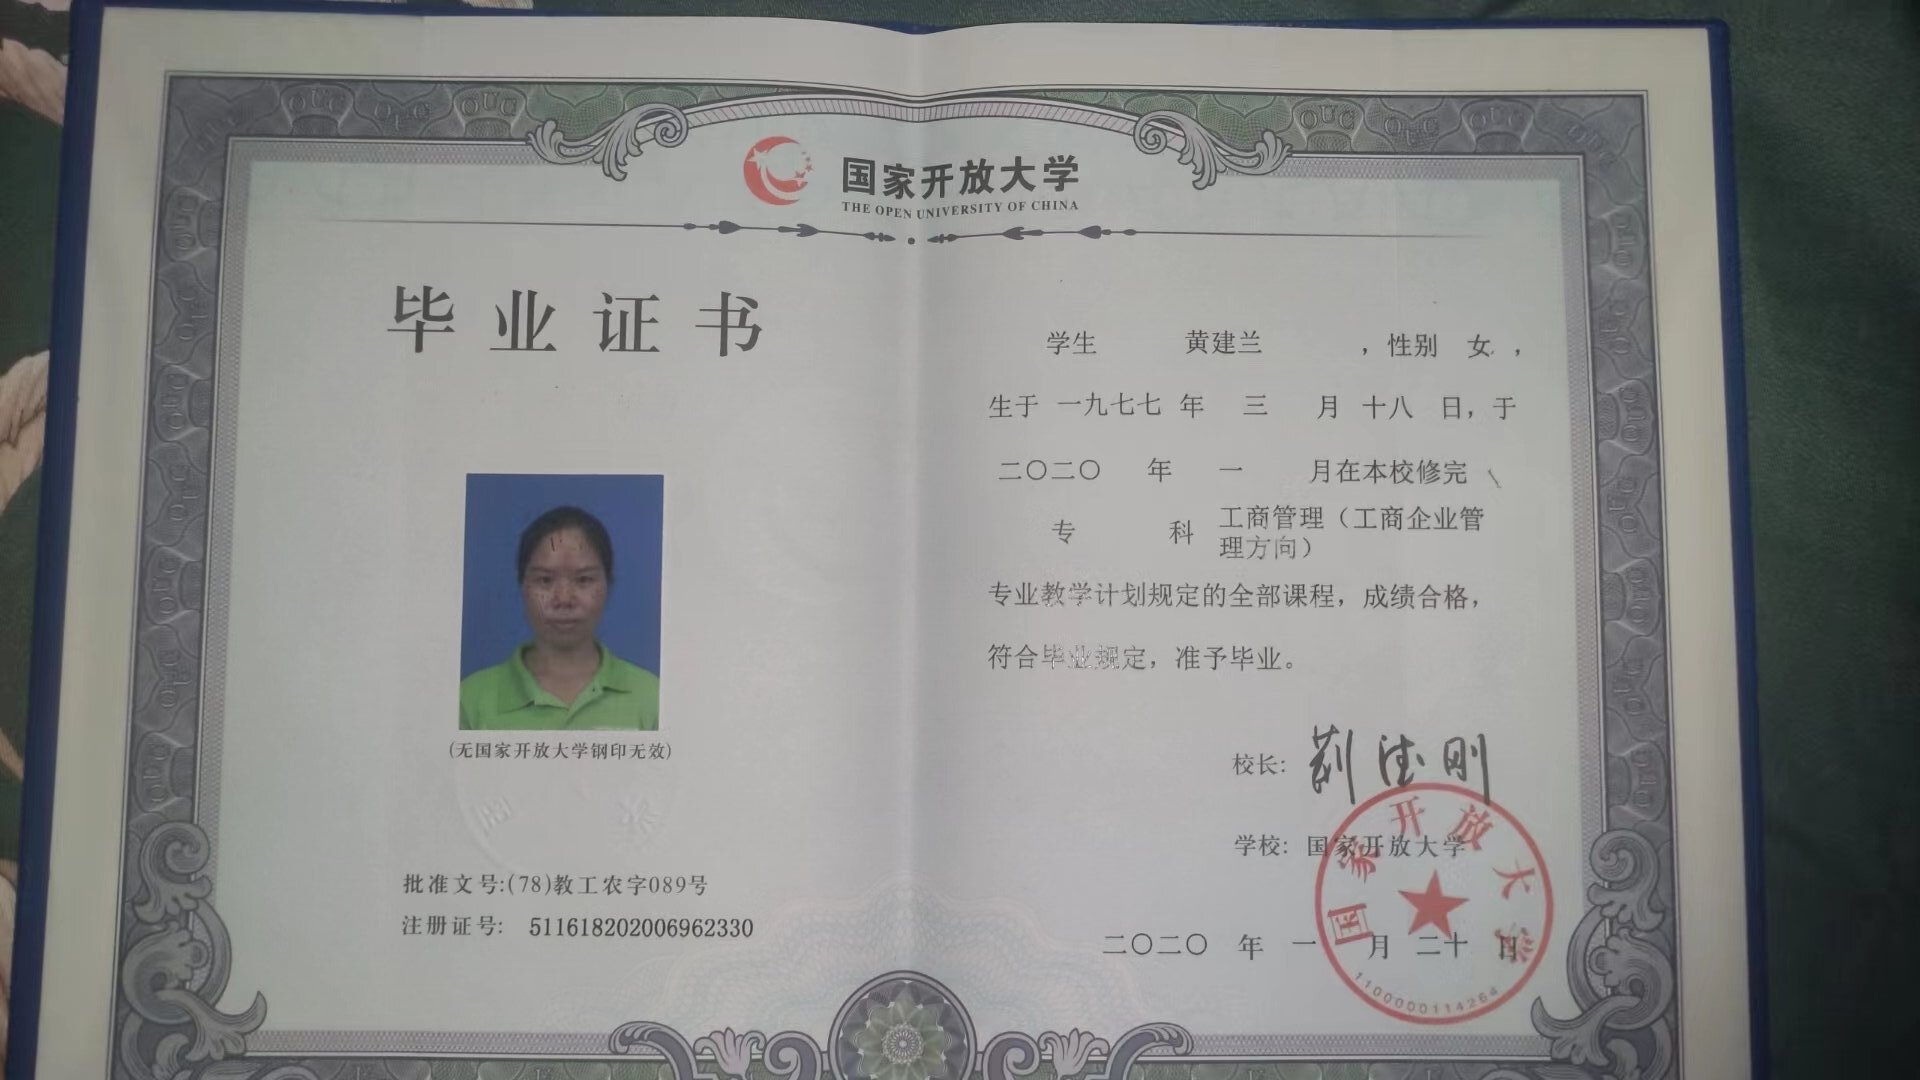 国家开放大学
THE OPEN UNIVERSITY OF CHINA
毕业证书
(无国家开放大学钢印无效)
批准文号:(78)教工农字089号
注册证号: 511618202006962330
学生 黄建兰 ，性别 女，
生于 一九七七 年 三 月 十八 日，于
二〇二〇 年 一 月在本校修完
专 科 工商管理（工商企业管
理方向）
专业教学计划规定的全部课程，成绩合格，
符合毕业规定，准予毕业。
校长:
学校: 国家开放大学
二〇二〇 年 一 月 二十 日
国家开放大学
1100000114264
OUC OUC OUC OUC OUC OUC